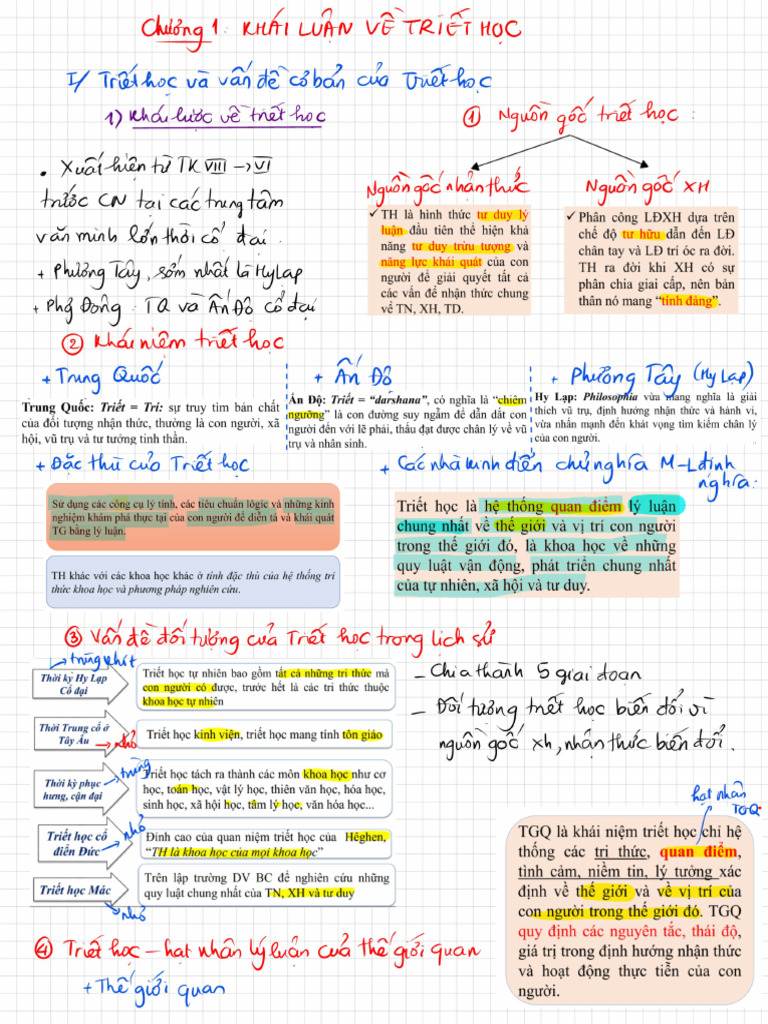 Chương 1: KHÁI LUẬN VỀ TRIẾT HỌC
I/ Triết học và vấn đề cơ bản của triết học
1) Khái lược về triết học
① Nguồn gốc triết học:
• Xuất hiện từ TK VIII → VI
trước CN tại các trung tâm
văn minh lớn thời cổ đại.
+ Phương Tây, sớm nhất là Hy Lạp
+ Phg Đông: TQ và Ấn Độ cổ đại
Nguồn gốc nhận thức
✓ TH là hình thức tư duy lý
luận đầu tiên thể hiện khả
năng tư duy trừu tượng và
năng lực khái quát của con
người để giải quyết tất cả
các vấn đề nhận thức chung
về TN, XH, TD.
Nguồn gốc XH
✓ Phân công LĐXH dựa trên
chế độ tư hữu dẫn đến LĐ
chân tay và LĐ trí óc ra đời.
TH ra đời khi XH có sự
phân chia giai cấp, nên bản
thân nó mang “tính đảng”.
② Khái niệm triết học
+ Trung Quốc
Trung Quốc: Triết = Trí: sự truy tìm bản chất
của đối tượng nhận thức, thường là con người, xã
hội, vũ trụ và tư tưởng tinh thần.
+ Ấn Độ
Ấn Độ: Triết = “darshana”, có nghĩa là “chiêm
ngưỡng” là con đường suy ngẫm để dẫn dắt con
người đến với lẽ phải, thấu đạt được chân lý về vũ
trụ và nhân sinh.
+ Phương Tây (Hy Lạp)
Hy Lạp: Philosophia vừa mang nghĩa là giải
thích vũ trụ, định hướng nhận thức và hành vi,
vừa nhấn mạnh đến khát vọng tìm kiếm chân lý
của con người.
+ Đặc thù của Triết học
Sử dụng các công cụ lý tính, các tiêu chuẩn lôgíc và những kinh
nghiệm khám phá thực tại của con người để diễn tả và khái quát
TG bằng lý luận.
TH khác với các khoa học khác ở tính đặc thù của hệ thống tri
thức khoa học và phương pháp nghiên cứu.
+ Các nhà kinh điển chủ nghĩa M-L định
nghĩa:
Triết học là hệ thống quan điểm lý luận
chung nhất về thế giới và vị trí con người
trong thế giới đó, là khoa học về những
quy luật vận động, phát triển chung nhất
của tự nhiên, xã hội và tư duy.
③ Vấn đề đối tượng của Triết học trong lịch sử
Thời kỳ Hy Lạp
Cổ đại
Triết học tự nhiên bao gồm tất cả những tri thức mà
con người có được, trước hết là các tri thức thuộc
khoa học tự nhiên
Thời Trung cổ ở
Tây Âu
nhỏ
Triết học kinh viện, triết học mang tính tôn giáo
Thời kỳ phục
hưng, cận đại
trùng
Triết học tách ra thành các môn khoa học như cơ
học, toán học, vật lý học, thiên văn học, hóa học,
sinh học, xã hội học, tâm lý học, văn hóa học...
Triết học cổ
điển Đức
nhỏ
Đỉnh cao của quan niệm triết học của Hêghen,
“TH là khoa học của mọi khoa học”
Triết học Mác
nhỏ
Trên lập trường DV BC để nghiên cứu những
quy luật chung nhất của TN, XH và tư duy
– Chia thành 5 giai đoạn
– Đối tượng triết học biến đổi vì
nguồn gốc xh, nhận thức biến đổi.
④ Triết học – hạt nhân lý luận của thế giới quan
+ Thế giới quan
hạt nhân
TGQ
TGQ là khái niệm triết học chỉ hệ
thống các tri thức, quan điểm,
tình cảm, niềm tin, lý tưởng xác
định về thế giới và về vị trí của
con người trong thế giới đó. TGQ
quy định các nguyên tắc, thái độ,
giá trị trong định hướng nhận thức
và hoạt động thực tiễn của con
người.